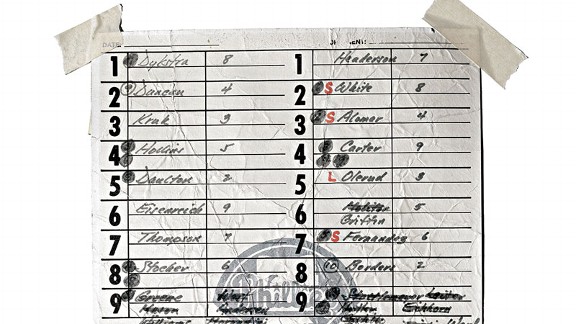 DATE
1 Dykstra 8 1 Henderson 7
2 Duncan 4 2 S White 8
3 Kruk 3 3 S Alomar 4
4 Hollins 5 4 Carter 9
5 Daulton 2 5 L Olerud 3
6 Eisenreich 9 6 Molitor 5
Griffin
7 Thompson 7 7 S Fernandez 6
8 Stocker 6 8 Borders 2
9 Greene West 9
Mason Andersen Eichhorn
Williams